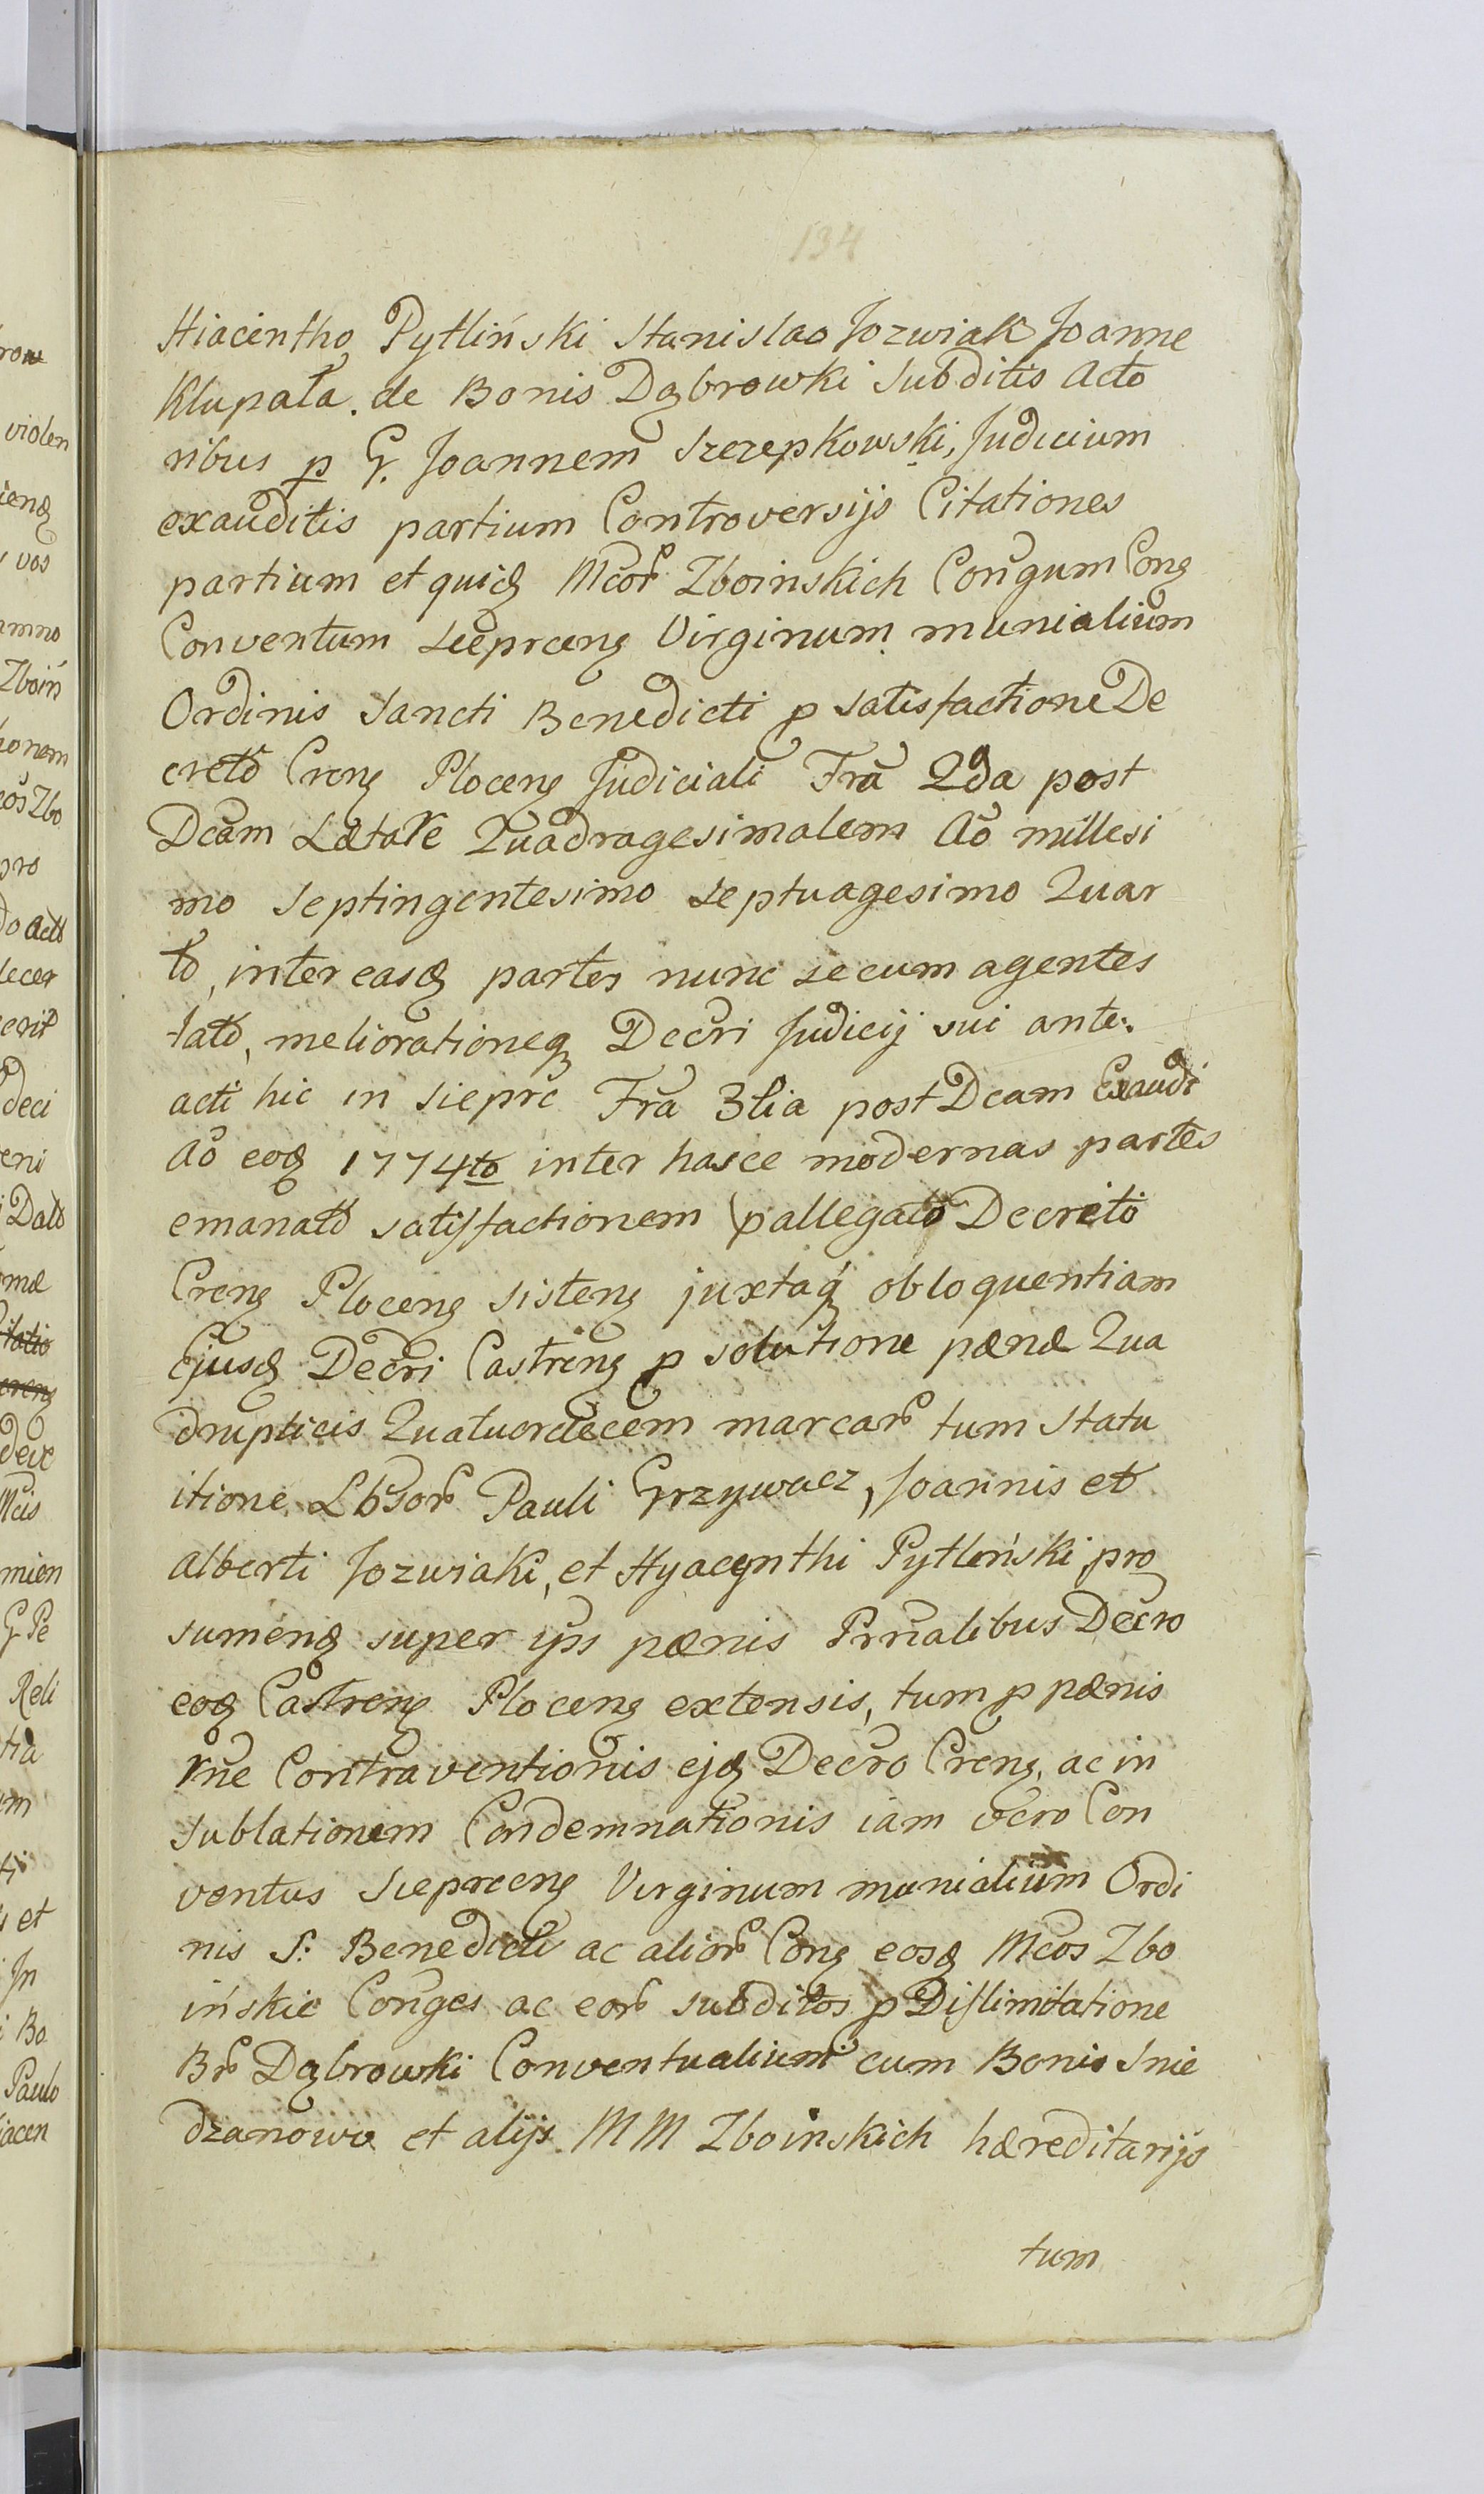 134
Hiacintho Pytliński Stanislao Jozwiak Joanne
Klupała. de Bonis Dąbrowki Subditis Acto
ribus p G. Joannem Szczepkowski, Judicium
exauditis partium Controversijs Citationes
partium et quidꝫ Mcor Zboinskich Congum Conꝫ
Conventum Sieprcenꝫ Virginum munialium
Ordinis Sancti Benedicti p satisfactione De
creto Crenꝫ Plocenꝫ Judiciali Fra 2da post
Dcam Lætare Quadragesimalem Ao millesi
mo Septingentesimo Septuagesimo Quar
to, inter easdꝫ partes nunc secum agentes
lato, meliorationeꝫ Decri Judicij sui ante
acti hic in Sieprc Fra 3tia post Dcam Exaudi
Ao eodꝫ 1774to inter hasce modernas partes
emanato satisfactionem pallegato Decreto
Crenꝫ Plocenꝫ sistenꝫ juxtaq obloquentiam
Ejusdꝫ Decri Castrenꝫ p solutione pænæ Qua
druplicis Quatuordecem marcar tum Statu
itione Lbsor Pauli Grzywacz, Joannis et
Alberti Jozwiaki, et Hyacynthi Pytlinski pro
sumendꝫ super ips pænis Prnalibus Decro
eodꝫ Castrenꝫ Plocenꝫ extensis, tum p pænis
rne Contraventionis ejdꝫ Decro Crenꝫ, ac in
sublationem Condemnationis iam vero Con
ventus Sieprcenꝫ Virginum munialium Ordi
nis S: Benedicti ac alior Conꝫ eosdꝫ Mcos Zbo
ińskie Conges ac eor subditos p Dislimitatione
Br Dąbrowki Conventualium cum Bonis Snie
dzanowo et alijs MM Zboinskich hæreditarijs
tum